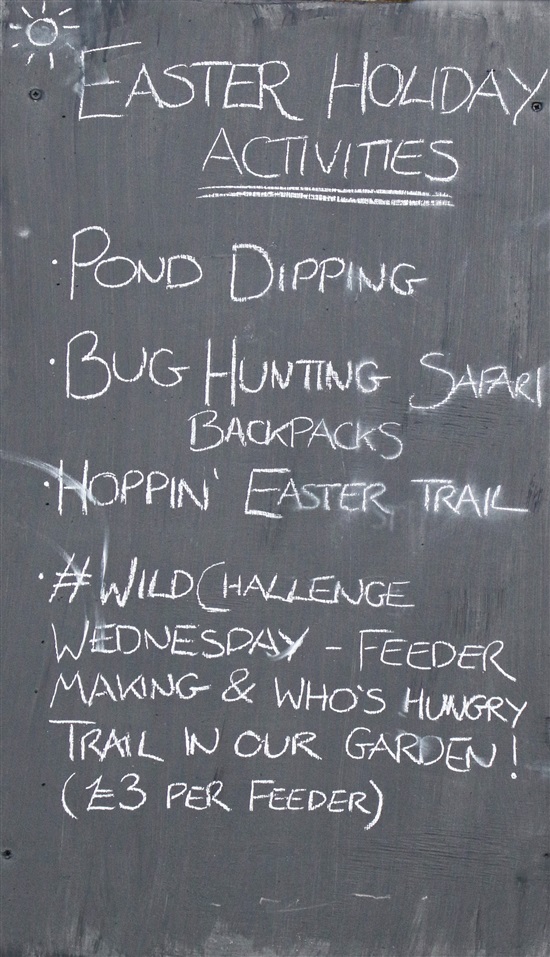 EASTER HOLIDAY
ACTIVITIES
· POND DIPPING
· BUG HUNTING SAFARI
BACKPACKS
· HOPPIN' EASTER TRAIL
· #WILDCHALLENGE
WEDNESDAY – FEEDER
MAKING & WHO'S HUNGRY
TRAIL IN OUR GARDEN!
(£3 PER FEEDER)